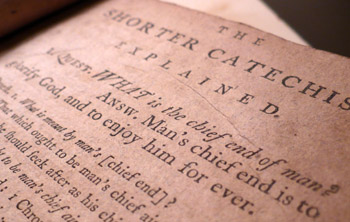 THE
SHORTER CATECHIS
EXPLAINED.
QUEST. WHAT is the chief end of man?
ANSW. Man's chief end is to
glorify God, and to enjoy him for ever.
What is meant by man's [chief end]?
which ought to be man's chief
he should seek after as his chi
to be man's chief